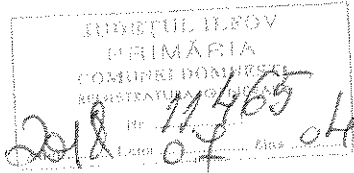 JUDEȚUL ILFOV
PRIMĂRIA
COMUNEI DOMNEȘTI
REGISTRATURA GENERALĂ
Nr. 11465
2018 Luna 07 Ziua 04